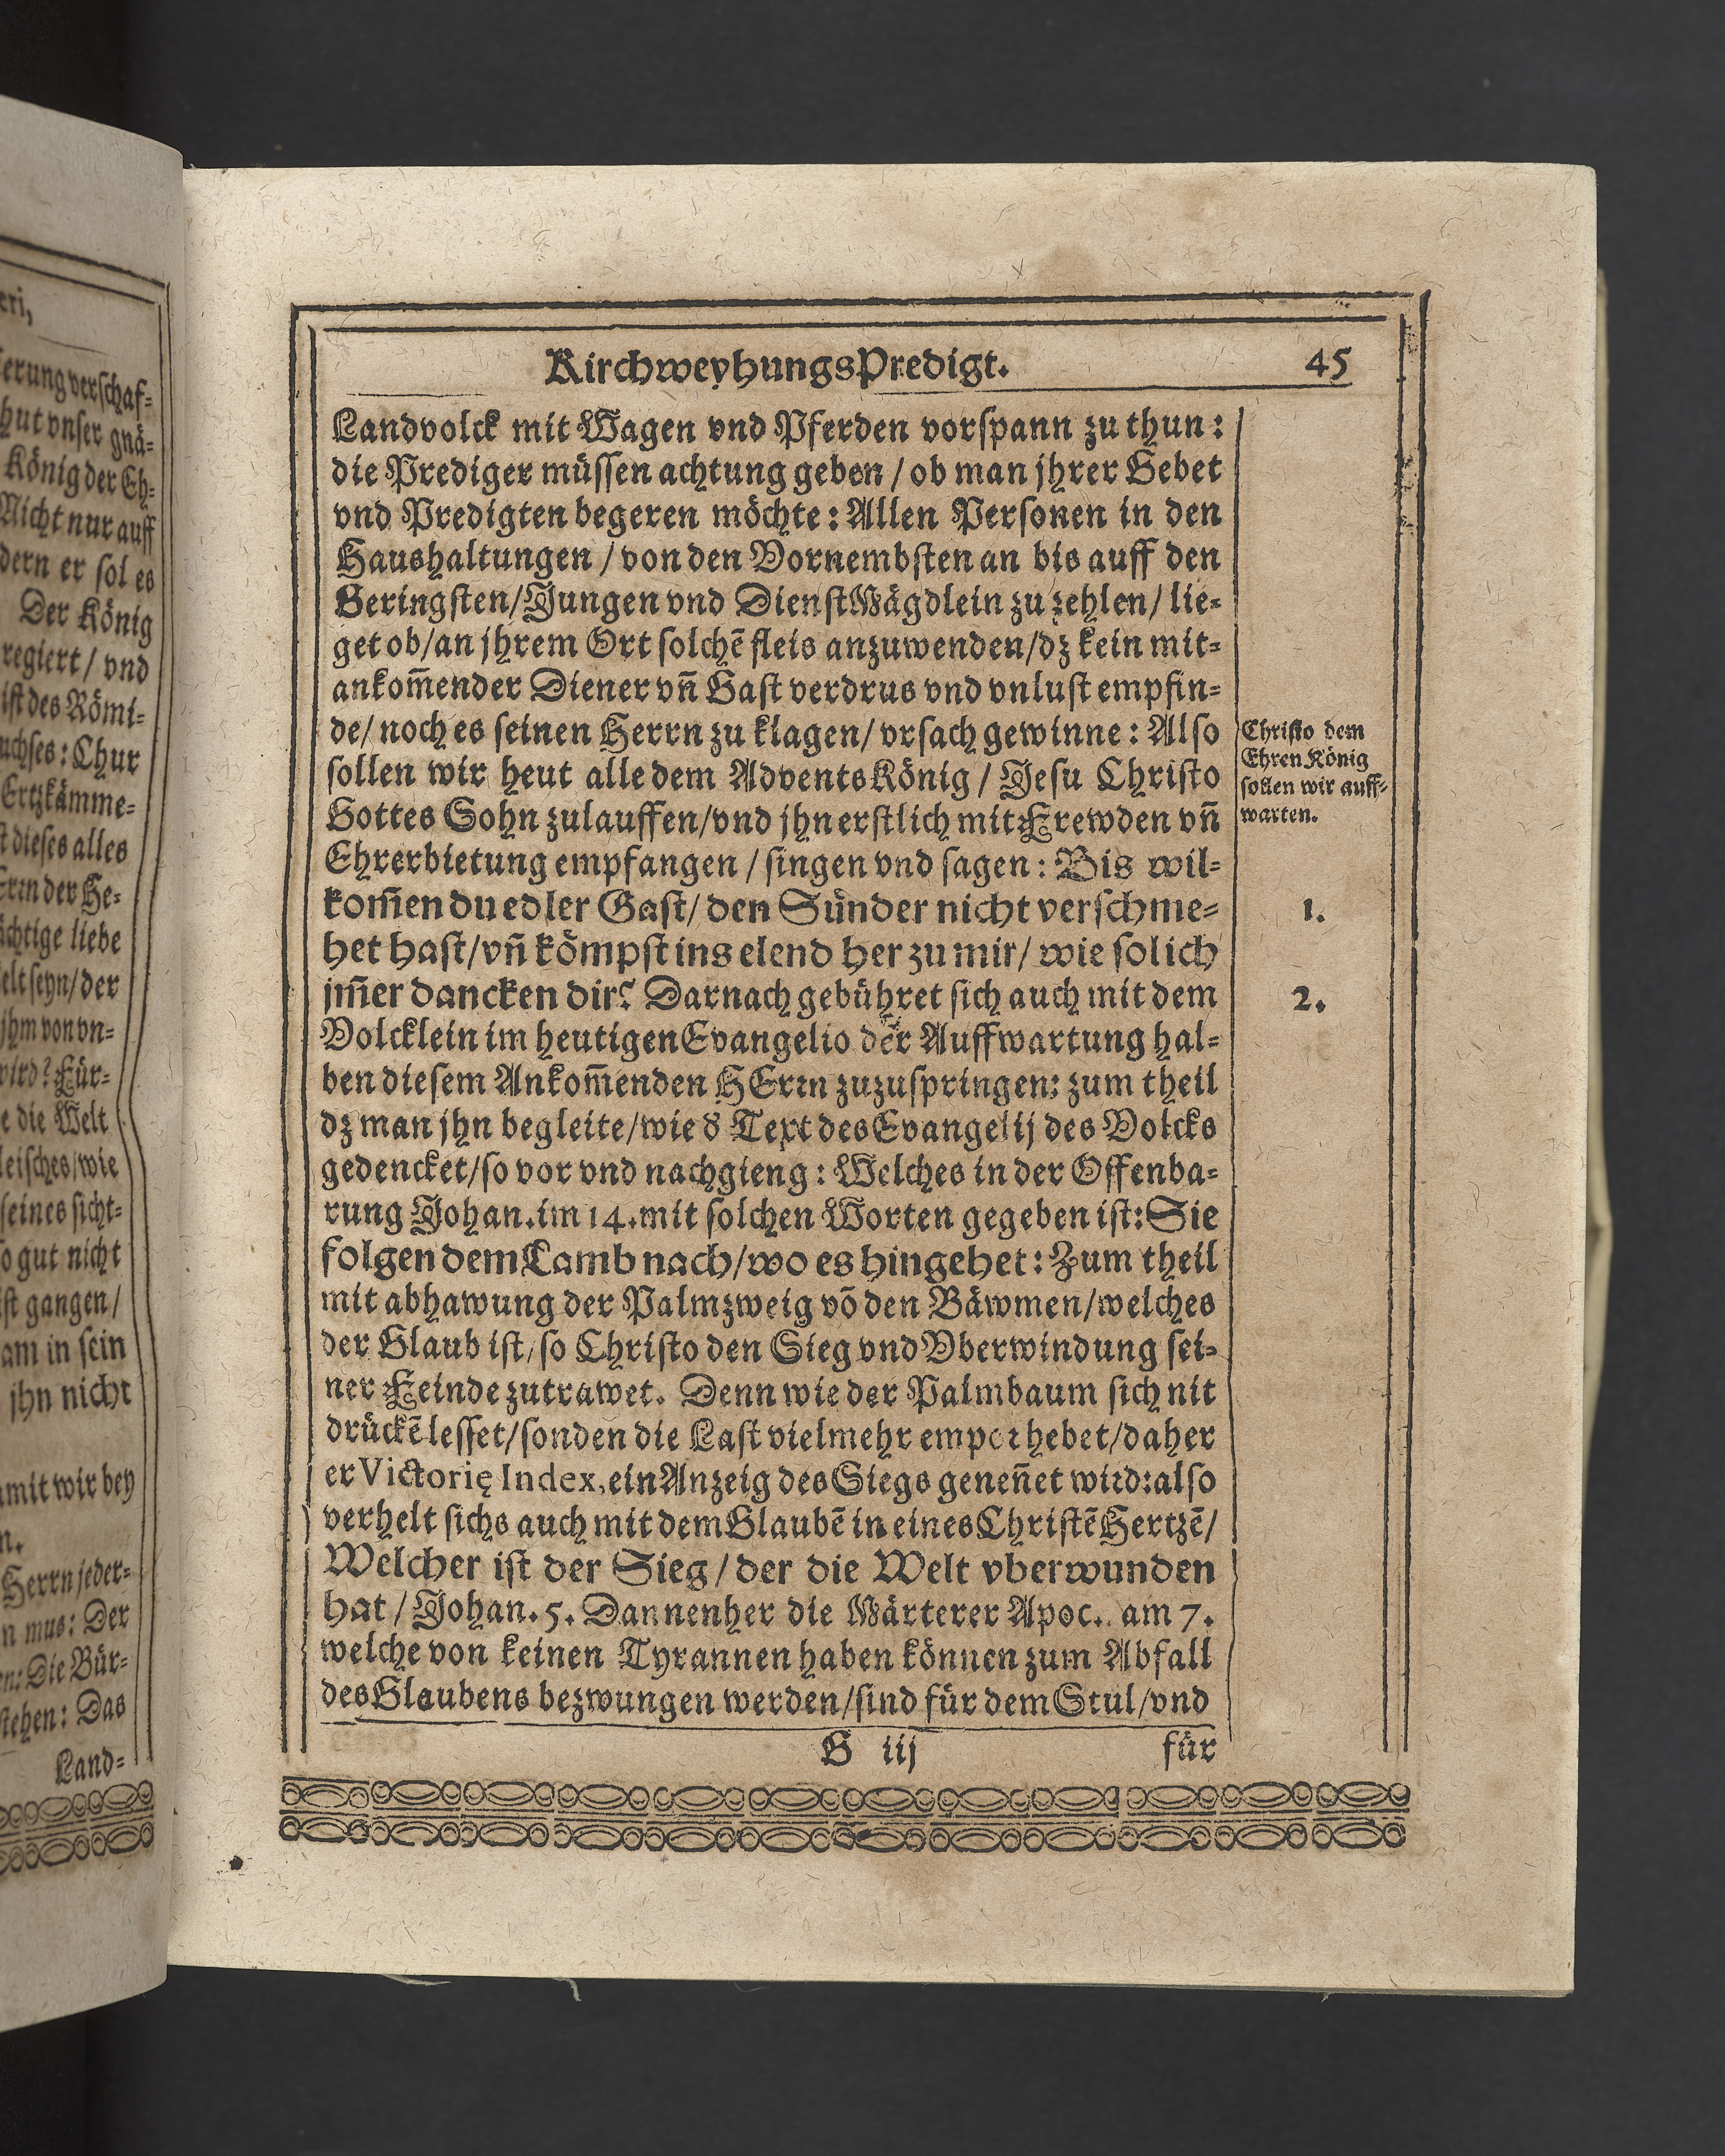 eri,
erung verschaf⸗
hut vnser gnä⸗
König der Eh⸗
Nicht nur auff
dern er sol es
Der König
regiert / vnd
ist des Römi⸗
uchses: Chur
Ertzkämme⸗
st dieses alles
der He⸗
ächtige liebe
elt seyn/der
jhm von vn⸗
wird? Für⸗
e die Welt
leisches/wie
seines sicht⸗
so gut nicht
ist gangen/
am in sein
jhn nicht
amit wir bey
n.
Herrn jeder⸗
n mus: Der
en: Die Bür⸗
stehen: Das
Land⸗
KirchweyhungsPredigt. 45
Landvolck mit Wagen vnd Pferden vorspann zu thun:
die Prediger müssen achtung geben / ob man jhrer Gebet
vnd Predigten begeren möchte: Allen Personen in den
Haushaltungen / von den Vornembsten an bis auff den
Geringsten/Jungen vnd DienstMägdlein zu zehlen/ lie⸗
get ob/an jhrem Ort solchē fleis anzuwenden/dz kein mit⸗
ankom̄ender Diener vn̄ Gast verdrus vnd vnlust empfin⸗
de/ noch es seinen Herrn zu klagen/ vrsach gewinne: Also
sollen wir heut alle dem AdventsKönig / Jesu Christo
Gottes Sohn zulauffen/vnd jhn erstlich mit Frewden vn̄
Ehrerbietung empfangen / singen vnd sagen: Bis wil⸗
kom̄en du edler Gast/ den Sünder nicht verschme⸗
het hast/vn̄ kömpst ins elend her zu mir/ wie sol ich
jm̄er dancken dir? Darnach gebühret sich auch mit dem
Volcklein im heutigen Evangelio der Auffwartung hal⸗
ben diesem Ankom̄enden HErrn zuzuspringen: zum theil
dz man jhn begleite/wie d' Text des Evangelij des Volcks
gedencket/so vor vnd nachgieng: Welches in der Offenba⸗
rung Johan. im 14. mit solchen Worten gegeben ist: Sie
folgen dem Lamb nach/wo es hingehet: Zum theil
mit abhawung der Palmzweig vō den Bäwmen/welches
der Glaub ist/ so Christo den Sieg vnd Vberwindung sei⸗
ner Feinde zutrawet. Denn wie der Palmbaum sich nit
drückē lesset/sonden die Last vielmehr empor hebet/daher
er Victorię Index, ein Anzeig des Siegs genen̄et wird: also
verhelt sichs auch mit dem Glaubē in eines Christē Hertzē/
Welcher ist der Sieg / der die Welt vberwunden
hat / Johan. 5. Dannenher die Märterer Apoc. am 7.
welche von keinen Tyrannen haben können zum Abfall
des Glaubens bezwungen werden/sind für dem Stul/vnd
G iij für
Christo dem
EhrenKönig
sollen wir auff⸗
warten.
1.
2.